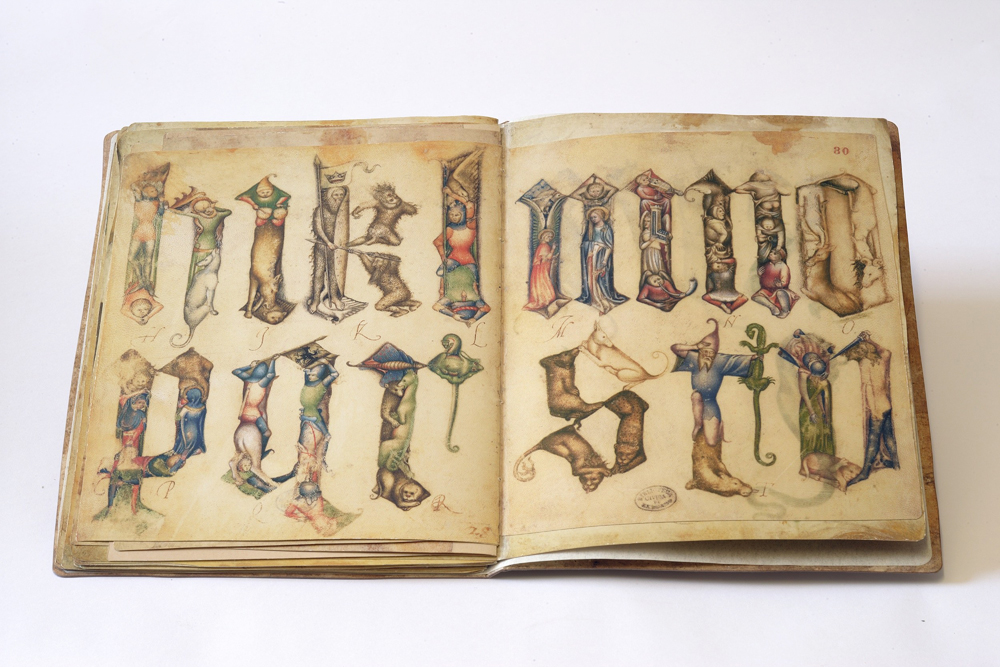 h i k l
H I K L
p q r
P Q R
30
m n o
M N O
s t v